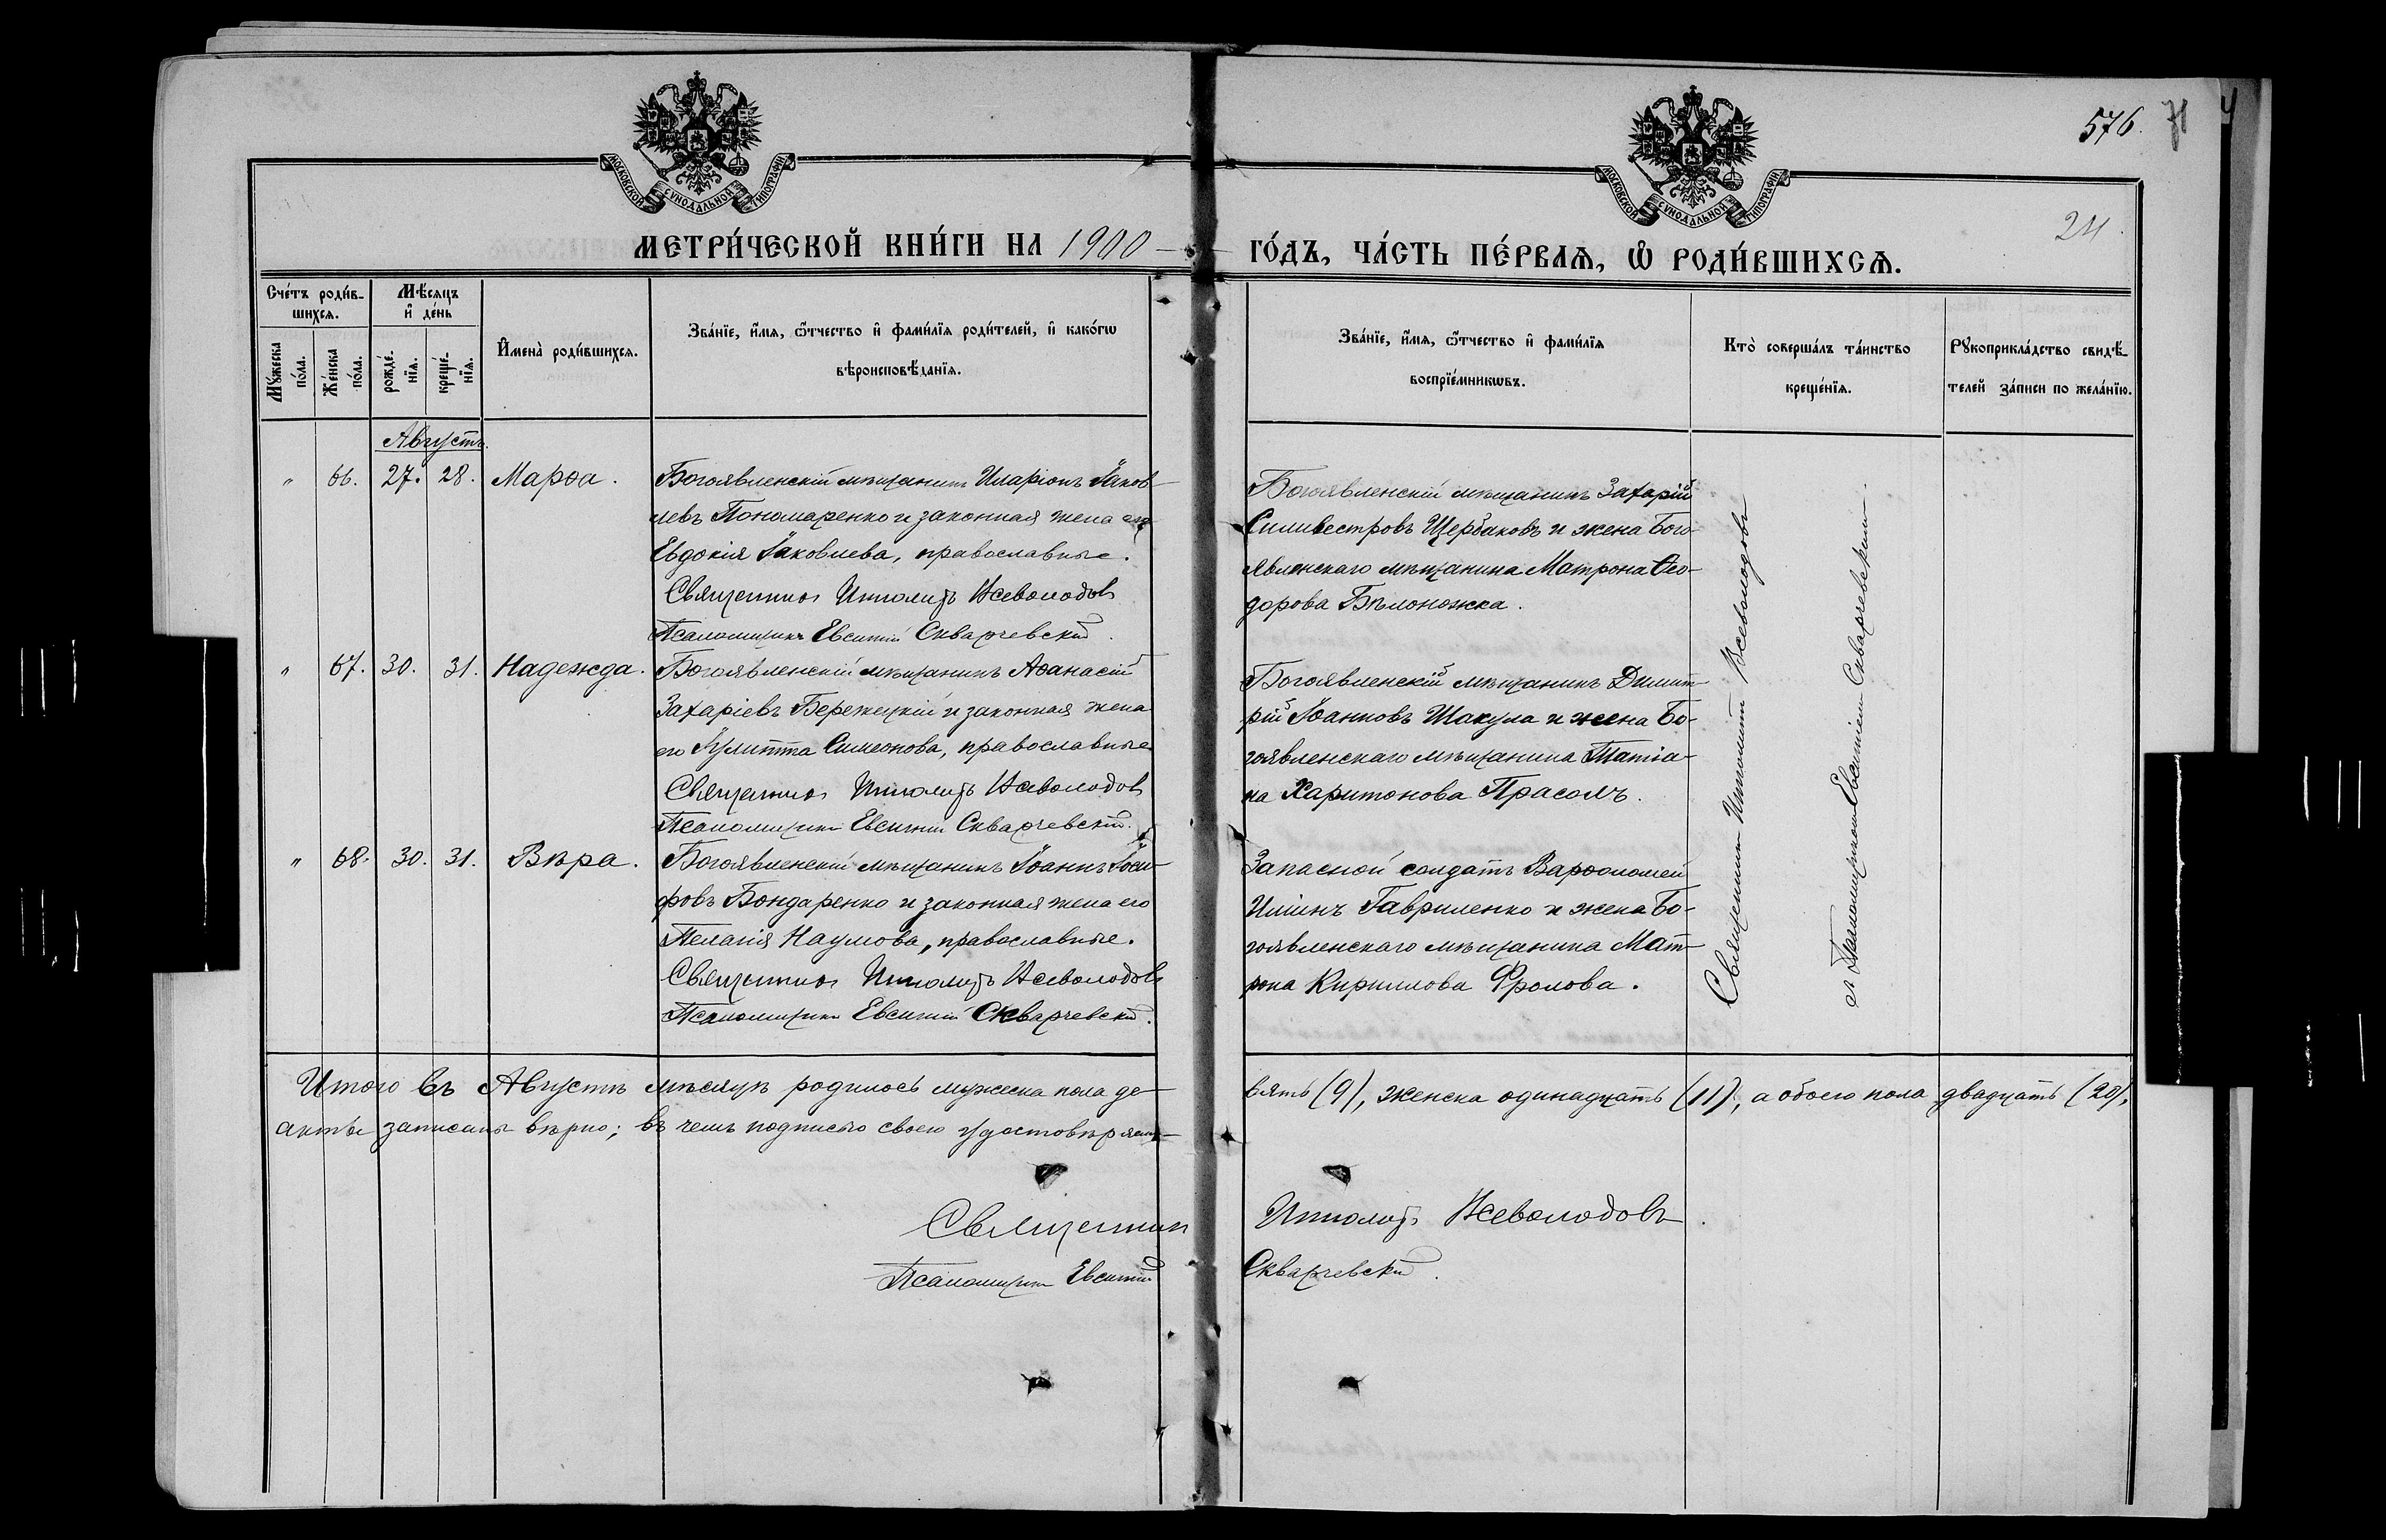 576.
24
МОСКОВСКОЙ СѴНОДАЛЬНОЙ ТИПОГРАФІИ
МОСКОВСКОЙ СѴНОДАЛЬНОЙ ТИПОГРАФІИ
МЕТРИ́ЧЕСКОЙ КНИ́ГИ НА 1900
ГО́ДЪ, ЧА́СТЬ ПЕ́РВАѦ, Ѡ РОДИ́ВШИХСѦ.
Сче́тъ роди́в-
шихсѧ.
Мѣ́сѧцъ
и҆ де́нь
Мꙋ́жеска по́ла.
Же́нска по́ла.
рожде́-
нїѧ.
креще́-
нїѧ.
И҆мена̀ роди́вшихсѧ.
Зва́нїе, и҆́мѧ, ѻ҆́тчество и҆ фами́лїѧ роди́телей, и҆ како́гѡ
вѣроисповѣ́данїѧ.
Зва́нїе, и҆́мѧ, ѻ҆́тчество и҆ фами́лїѧ
воспрїе́мникѡвъ.
Кто̀ соверша́лъ та́инство
креще́нїѧ.
Рꙋкоприкла́дство свидѣ́-
телей за́писи по жела́нїю.
Августъ.
" 66. 27. 28. Марѳа.
Богоявленскій мѣщанинъ Иларіонъ Іаков-
левъ Пономаренко и законная жена его
Евдокія Іаковлева, православные.
Священник Ипполитъ Всеволодов
Псаломщикъ Евсигній Скваржевскій.
Богоявленскій мѣщанинъ Захарій
Силивестровъ Щербаковъ и жена Бого-
явленскаго мѣщанина Матрона Ѳео-
дорова Бѣлоножка.
" 67. 30. 31. Надежда.
Богоявленскій мѣщанинъ Аѳанасій
Захаріевъ Бережецкій и законная жена
его Іулитта Симеонова, православные
Священник Ипполитъ Всеволодов
Псаломщикъ Евсигній Скваржевскій.
Богоявленскій мѣщанинъ Димит-
рій Іоанновъ Шакула и жена Бо-
гоявленскаго мѣщанина Татіа-
на Харитонова Прасолъ.
" 68. 30. 31. Вѣра.
Богоявленскій мѣщанинъ Іоаннъ Іоси-
фовъ Бондаренко и законная жена его
Пелагія Наумова, православные.
Священник Ипполитъ Всеволодовъ
Псаломщикъ Евсигній Скваржевскій.
Запасной солдатъ Варѳоломей
Иліинъ Гавриленко и жена Бо-
гоявленскаго мѣщанина Мат-
рона Кириллова Фролова.
Священникъ Ипполитъ Всеволодовъ
съ Псаломщикомъ Евсигніемъ Скваржевскимъ.
Итого въ Августѣ мѣсяцѣ родилось мужеска пола де-
вять (9), женска одинадцать (11), а обоего пола двадцать (20),
акты записаны вѣрно; въ чемъ подписью своею удостовѣряемъ
Священник Ипполитъ Всеволодовъ
Псаломщикъ Евсигній Скваржевскій.